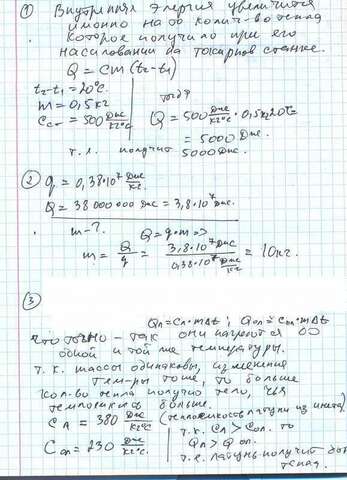 ① Внутренняя энергия увеличится
именно на то колич-во тепла
которое получило при его
на токарном станке.
Q = cm (t₂-t₁)
t₂-t₁=20°C.
m = 0,5 кг
Cст = 500 Дж/кг°C
тогда
Q = 500 Дж/кг°C · 0,5кг20°C
= 5000 Дж.
т.е. получит 5000 Дж.
② q = 0,38·10⁷ Дж/кг.
Q = 38 000 000 Дж = 3,8·10⁷ Дж.
m-?
Q = q·m =>
m = Q/q = 3,8·10⁷Дж / 0,38·10⁷ Дж/кг = 10кг.
③
Qл = Cл·mΔt ; Qол = Cол·mΔt
что точно - так они нагреются до
одной и той же температуры.
т.к. массы одинаковы, изменения
тем-ры тоже, то больше
кол-во тепла получило тело, чья
теплоемкость больше
(теплоемкость латуни из инета)
Cл = 380 Дж/кг°C
Cол = 230 Дж/кг°C
т.к. Cл > Cол. то
Qл > Qол.
т.е. латунь получит
тепла.